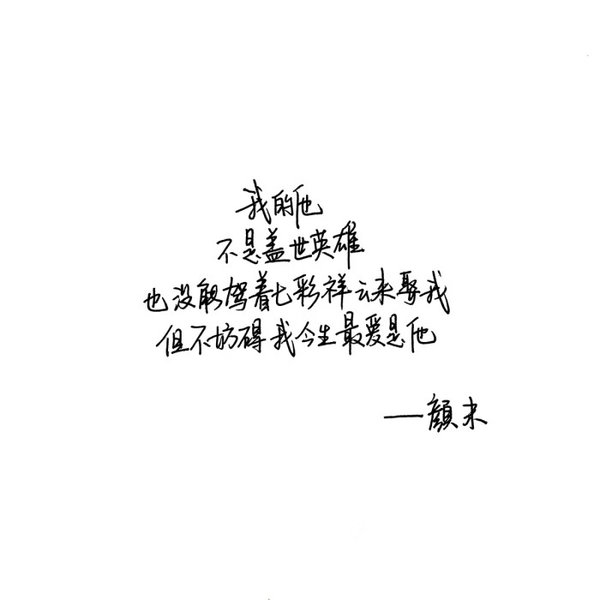 我的他
不是盖世英雄
也没能驾着七彩祥云来娶我
但不妨碍我今生最爱是他
——顔末